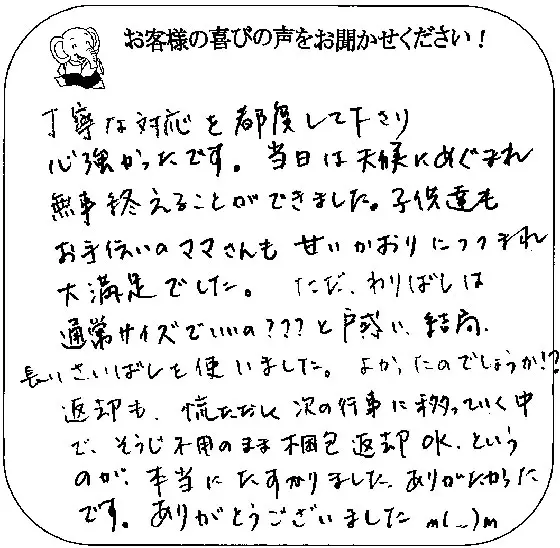 お客様の喜びの声をお聞かせください！
丁寧な対応を都度して下さり
心強かったです。当日は天候にめぐまれ
無事終えることができました。子供達も
お手伝いのママさんも せいかおりにつつまれ
大満足でした。 ただ、わりばしは
通常サイズでいいの???と戸惑い、結局、
長いさいばしを使いました。よかったのでしょうか!?
返却も、慌ただしく次の行事に移っていく中
で、そうじ不用のまま梱包返却OK、という
のが、本当にたすかりました。ありがたかった
です。ありがとうございました m(_)m